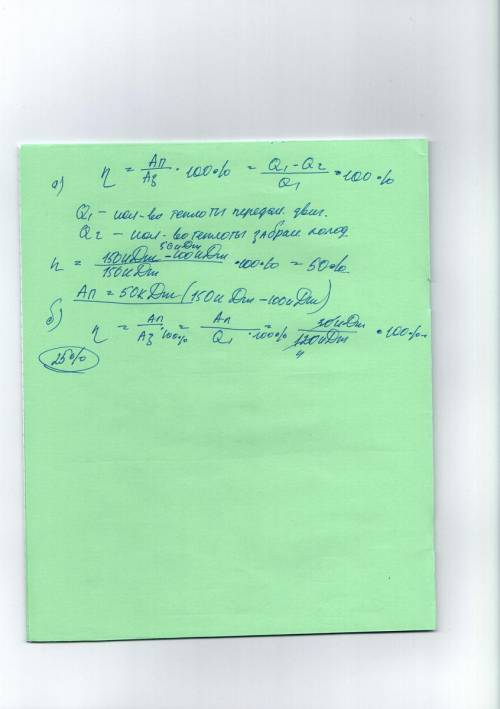 а) η = Ап/Аз · 100% = Q1 - Q2/Q1 · 100%
Q1 - кол-во теплоты передан. двиг.
Q2 - кол-во теплоты забран. холод.
50кДж
η = 150кДж - 100кДж/150кДж · 100% = 50%
Ап = 50кДж (150кДж - 100кДж)
б) η = Ап/Аз · 100% = Ап/Q1 · 100% = 30кДж/120кДж · 100%
25%